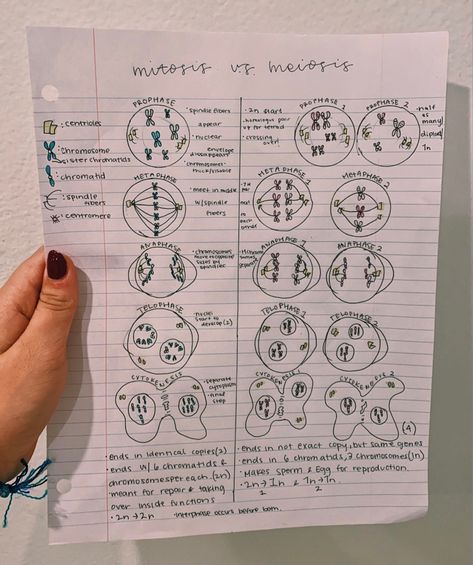 mitosis v.s. meiosis
: centrioles
: chromosome
sister chromatids
: chromatid
: spindle
fibers
: centromere
PROPHASE
• spindle fibers
appear
• nuclear
envelope
disappears
• chromosomes
thick/visible
METAPHASE
• meet in middle
w/spindle
fibers
ANAPHASE
• chromosomes
move to opposite
sides to
spindles
TELOPHASE
• nuclei
start to
develop (2)
CYTOKENESIS
• separate
cytoplasm
• final
step
• ends in identical copies (2)
• ends w/ 6 chromatids &
chromosomes per each. (2n)
• means for repair & taking
over inside functions
• 2n → 2n
interphase occurs before both.
• 2n start
• homologus pair
up for tetrad
• crossing
over!
PROPHASE 1
PROPHASE 2
• half
as
many
diploid
1n
METAPHASE 1
METAPHASE 2
next
to
each
other
ANAPHASE 1
ANAPHASE 2
TELOPHASE 1
TELOPHASE 2
CYTOKENESIS 1
CYTOKENESIS 2
(4)
• ends in not exact copy, but same genes
• ends in 6 chromatids, 3 chromosomes (1n)
• Makes sperm & Egg for reproduction.
• 2n → 1n & 1n → 1n.
1 2